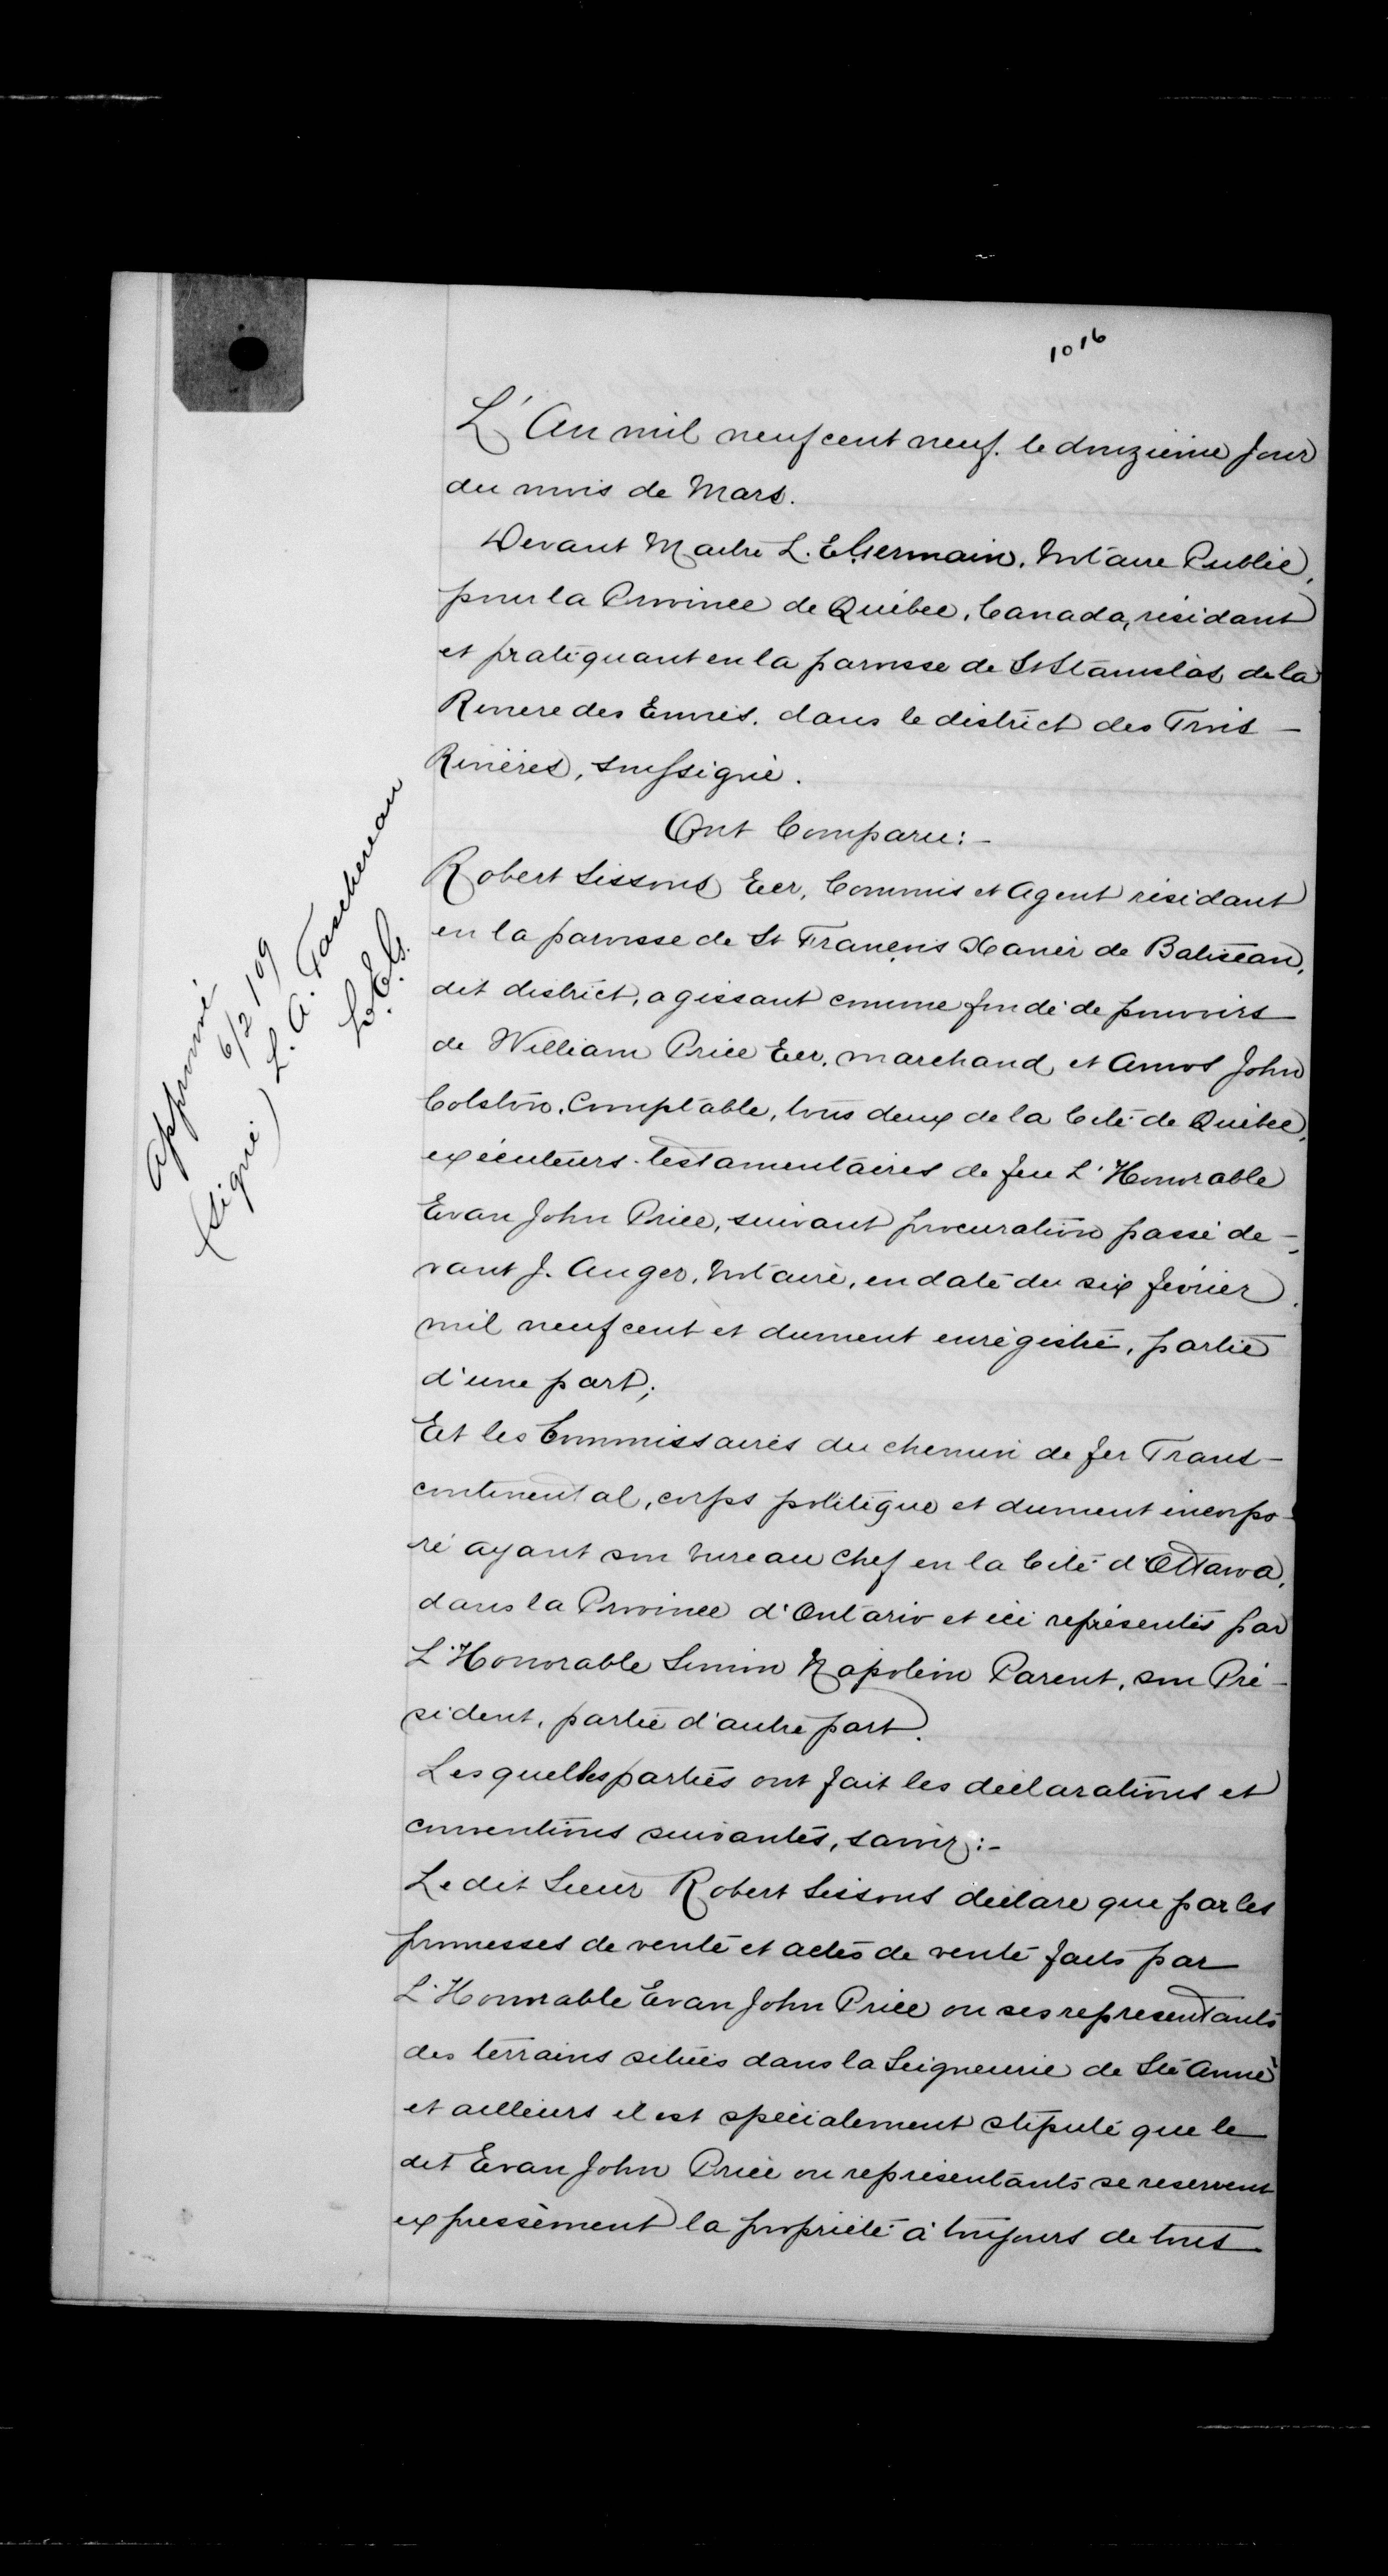 1016
L'An mil neuf cent neuf. le douzième jour
du mois de Mars.
Devant Maitre L. E. Germain, Notaire Public,
pour la Province de Québec, Canada, résidant
et pratiquant en la paroisse de St Stanislas de la
Riviere des Envies. dans le district des Trois-
Rivières, soussigné.
Ont Comparu:-
Robert Sissons Ecr, Commis et Agent résidant
en la paroisse de St François Xavier de Batiscan,
dit district, agissant comme fondé de pouvoirs
de William Price Ecr, marchand, et Amos John
Colston, Comptable, tous deux de la Cité de Québec,
exécuteurs-testamentaires de feu L'Honorable
Evan John Price, suivant procuration passé de-
vant J. Auger, Notaire, en daté du six février
mil neuf cent et dument enrégistré, partie
d'une part;
Et les Commissaires du chemin de fer Trans-
continental, corps politique et dument incorpo-
ré ayant son bureau chef en la Cité d'Ottawa,
dans la Province d'Ontario et ici représentés par
L'Honorable Simon Napoléon Parent, son Pré-
sident, partie d'autre part.
Lesquelles parties ont fait les déclarations et
conventions suivantes, savoir:-
Le dit Sieur Robert Sissons déclare que par les
promesses de vente et actes de vente faits par
L'Honorable Evan John Price ou ses representants
des terrains situés dans la Seigneurie de Ste Anne
et ailleurs il est spécialement stipulé que le
dit Evan John Price ou représentants se reservent
expressément la propriété à toujours de tous
Approuvé
6/2/09
(signé) L. A. Taschereau
L. E. G.